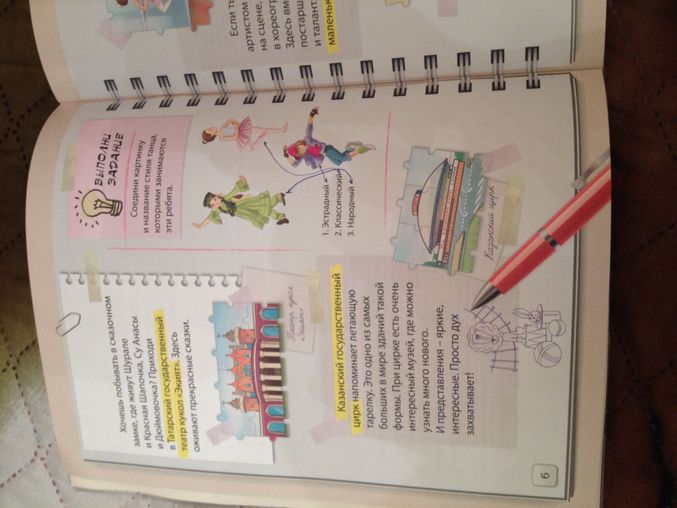 Если ть
артистом
на сцене,
в хореогр
Здесь вм
постарш
и талант
маленьк
ВЫПОЛНИ
ЗАДАНИЕ
Соедини картинку
и название стиля танца,
которыми занимаются
эти ребята.
1. Эстрадный
2. Классический
3. Народный
Хочешь побывать в сказочном
замке, где живут Шурале
и Красная Шапочка, Су Анасы
и Дюймовочка? Приходи
в Татарский государственный
театр кукол «Экият». Здесь
оживают прекрасные сказки.
Театр кукол
«Экият»
Казанский государственный
цирк напоминает летающую
тарелку. Это одно из самых
больших в мире зданий такой
формы. При цирке есть очень
интересный музей, где можно
узнать много нового.
И представления – яркие,
интересные. Просто дух
захватывает!
Казанский цирк
6